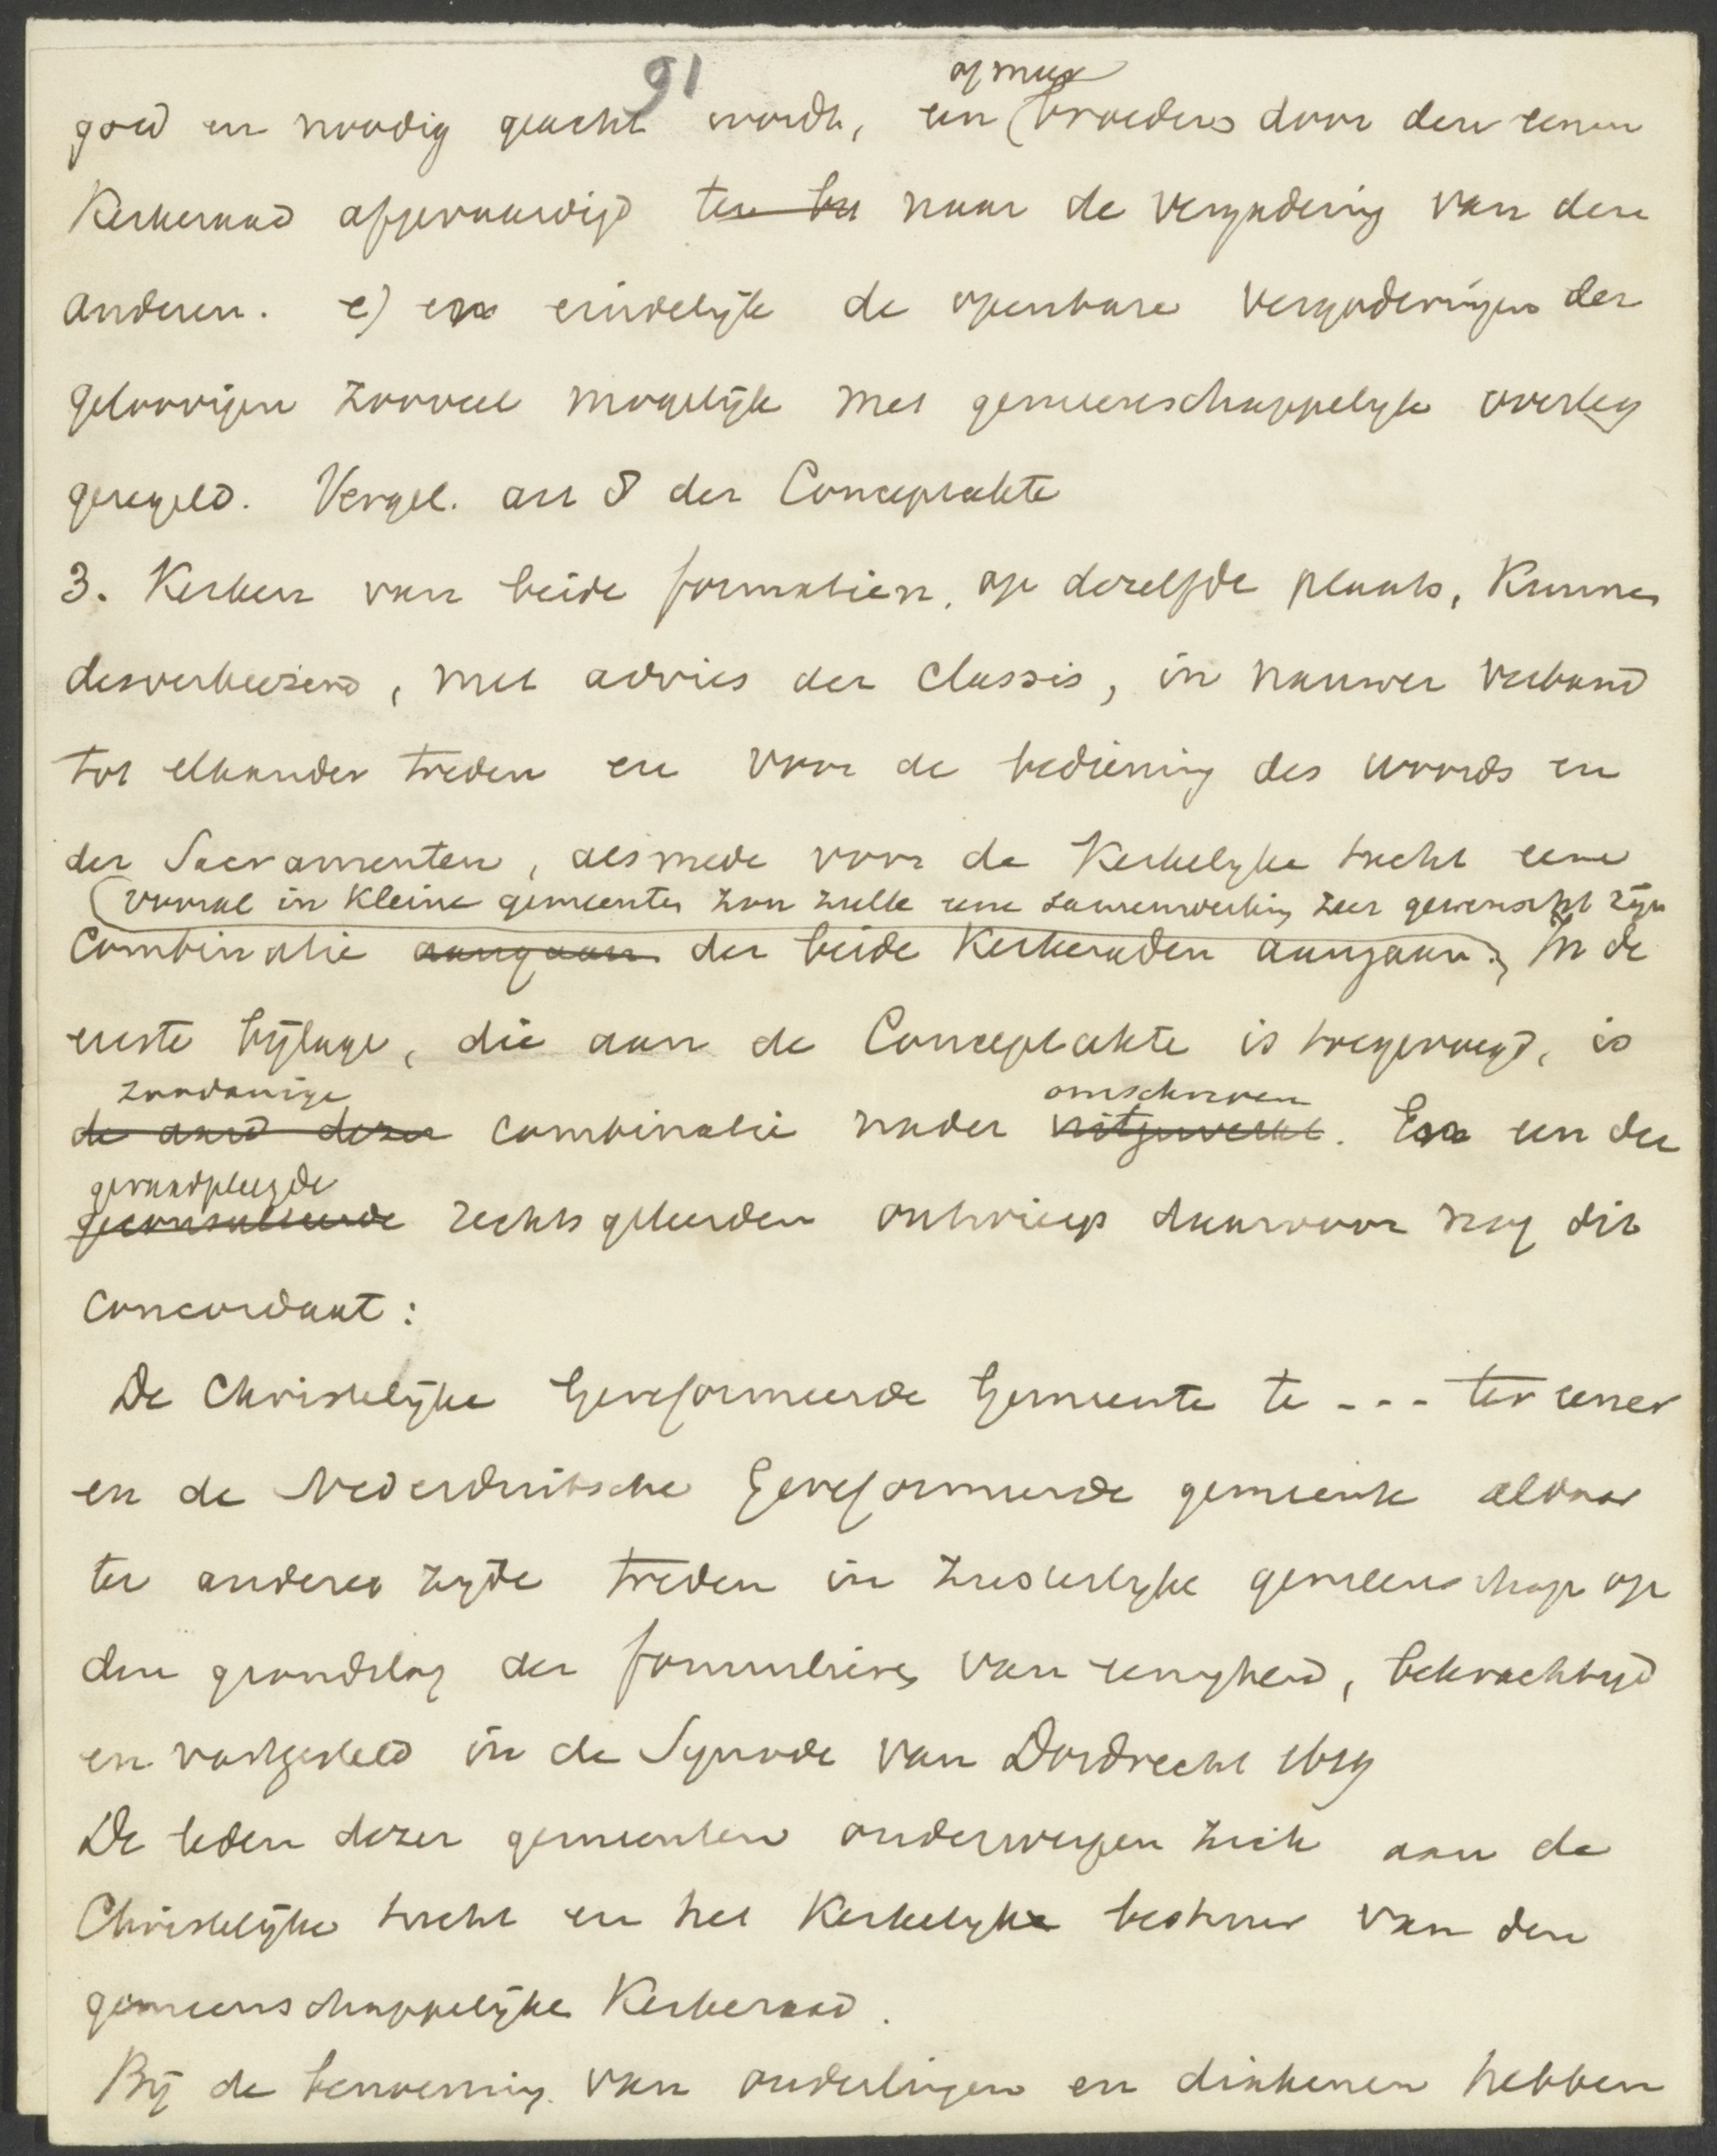 91
of meer
goed en noodig geacht wordt, een broeders door den eenen
Kerkeraad afgevaardigd ten be naar de vergadering van den
anderen. e) en eindelijk de openbare vergaderingen der
geloovigen zooveel mogelijk met gemeenschappelijk overleg
geregeld. Vergel. art 8 der Conceptakte
3. Kerken van beide formatien, op dezelfde plaats, kunnen
desverkiezend, met advies der classis, in nauwer verband
tot elkander treden en voor de bediening des woords en
der Sacramenten, alsmede voor de Kerkelijke tucht eene
vooral in kleine gemeenten zou zulk eene samenwerking zeer gewenscht zijn
Combinatie aangaan der beide Kerkeraden aangaan. In de
eerste bijlage, die aan de Conceptakte is toegevoegd, is
zoodanige omschreven
de aard dezer combinatie nader uitgewerkt. En een der
geraadpleegde
geconsulteerde rechtsgeleerden ontwierp daarvoor nog dit
concordaat:
De Christelijke Gereformeerde Gemeente te - - - ter eener
en de Nederduitsche Gereformeerde gemeente aldaar
ter anderer zijde treden in zusterlijke gemeenschap op
den grondslag der formulieren van eenigheid, bekrachtigd
en vastgesteld in de Synode van Dordrecht 1619
De leden dezer gemeenten onderwerpen zich aan de
Christelijke tucht en het Kerkelijke bestuur van den
gemeenschappelijke Kerkeraad.
Bij de benoeming van ouderlingen en diakenen hebben